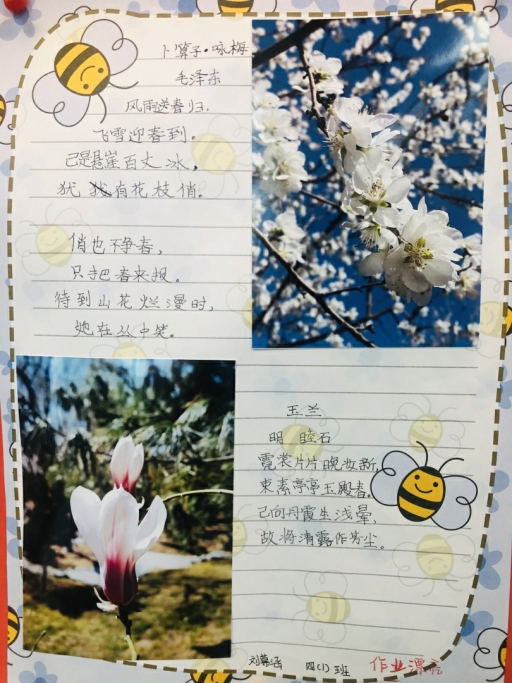 卜算子·咏梅
毛泽东
风雨送春归,
飞雪迎春到。
已是悬崖百丈冰。
犹有花枝俏。
俏也不争春,
只把春来报。
待到山花烂漫时,
她在丛中笑。
玉兰
明 睦石
霓裳片片晚妆新,
束素亭亭玉殿春。
已向丹霞生浅晕,
故将清露作芳尘。
四(1)班
作业漂亮